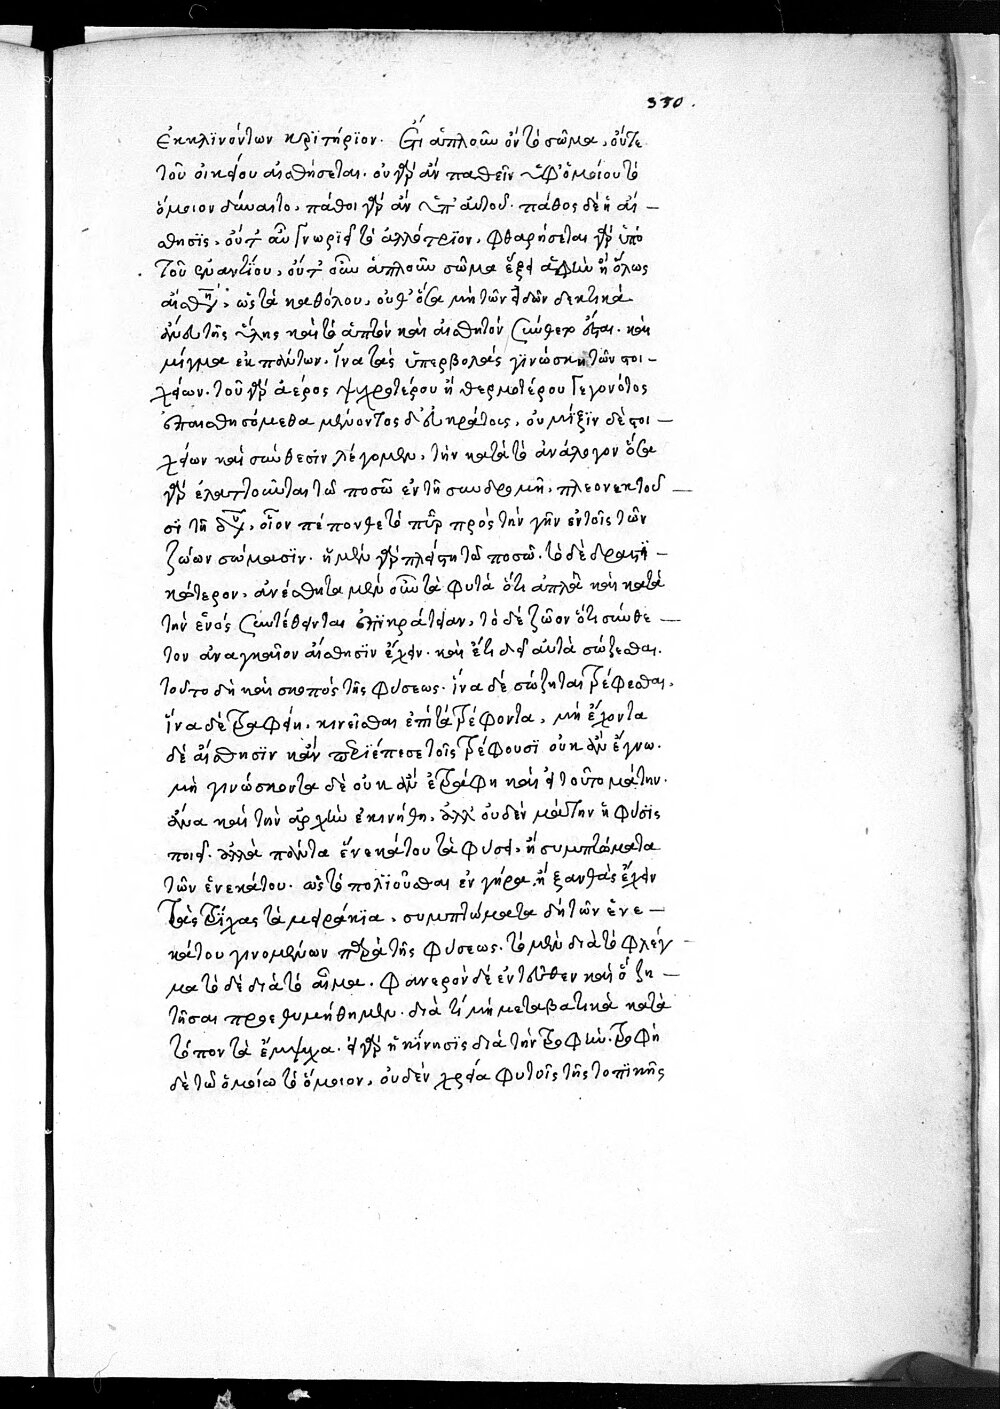 330.
ἐκκλϊνόντων κρϊτήρϊον. Εἰ ἁπλοῦν ὂν τὸ σῶμα, οὔτε
τοῦ οἰκείου αἰσθήσεται. οὐ γὰρ ἂν παθεῖν ὑφ' ὁμοίου τὸ
ὅμοιον δύναιτο, πάθοι γὰρ ἂν ὑπ' αὐτοῦ. πάθος δὲ ἡ αἴ—
σθησϊς, οὔτ' αὖ γνωρϊεῖ τὸ ἀλλότρϊον, φθαρήσεται γὰρ ὑπὸ
τοῦ ἐναντίου, οὔτ' οὖν ἁπλοῦν σῶμα ἕξει ἁφὴν ἢ ὅλως
αἴσθη, ὡς τὰ καθόλου, οὔθ' ὅσα μὴ τῶν εἰδῶν δεκτικὰ
ἄνευ τῆς ὕλης καὶ τὸ ἁπτὸν καὶ αἰσθητὸν σύνθετον ἔσται. καὶ
μίγμα ἐκ πάντων. ἵνα τὰς ὑπερβολὰς γϊνώσκῃ τῶν στοι—
χείων. τοῦ γὰρ ἀέρος ψυχροτέρου ἢ θερμοτέρου γεγονότος
ἐπαισθησόμεθα μένοντος δ' εὐκράτους, οὐ μίξϊν δὲ στοι—
χείων καὶ σύνθεσϊν λέγομεν, τὴν κατὰ τὸ ἀνάλογον ὅσα
γὰρ ἐλαττοῦνται τῷ ποσῷ ἐν τῇ συνδρομῇ, πλεονεκτοῦ—
σϊ τῇ δυ, οἷον πέπονθε τὸ πῦρ πρὸς τὴν γῆν ἐν τοῖς τῶν
ζώων σώμασϊν. ἡ μὲν γὰρ πλείστη τῷ ποσῷ. τὸ δὲ δραστϊ—
κώτερον, ἀναίσθητα μὲν οὖν τὰ φυτὰ ὅτι ἁπλᾶ καὶ κατὰ
τὴν ἑνὸς συντέθειται ἐπϊκράτειαν, τὸ δὲ ζῶον ὅτι σύνθε—
τον ἀναγκαῖον αἴσθησϊν ἔχειν. καὶ ἔτι δεῖ αὐτὰ σώζεσθαι.
τοῦτο δὴ καὶ σκοπὸς τῆς φύσεως. ἵνα δὲ σώζηται τρέφεσθαι,
ἵνα δὲ τραφείη, κινεῖσθαι ἐπὶ τὰ τρέφοντα, μὴ ἔχοντα
δὲ αἴσθησϊν κἂν περϊέπεσε τοῖς τρέφουσϊ οὐκ ἂν ἔγνω.
μὴ γινώσκοντα δὲ οὐκ ἂν ἐτράφη καὶ εἰ τοῦτο μάτην.
ἅμα καὶ τὴν ἀρχὴν ἐκινήθη, ἀλλ' οὐδὲν μάτην ἡ φύσϊς
ποιεῖ. ἀλλὰ πάντα ἕνεκά του τὰ φύσει, ἢ συμπτώματα
τῶν ἕνεκά του. ὡς τὸ πολϊοῦσθαι ἐν γήρᾳ ἢ ξανθὰς ἔχειν
τὰς τρίχας τὰ μειράκϊα, συμπτώματα δὴ τῶν ἕνε—
κά του γινομένων παρὰ τῆς φύσεως. τὸ μὲν διὰ τὸ φλέγ—
μα τὸ δὲ διὰ τὸ αἷμα. Φανερὸν δὲ ἐντεῦθεν καὶ ὃ ζη—
τῆσαι προεθυμήθημεν. διὰ τί μὴ μεταβατικὰ κατὰ
τόπον τὰ ἔμψυχα. εἰ γὰρ ἡ κίνησϊς διὰ τὴν τροφὴν. τροφὴ
δὲ τῷ ὁμοίῳ τὸ ὅμοιον, οὐδὲν χρεία φυτοῖς τῆς τοπϊκῆς